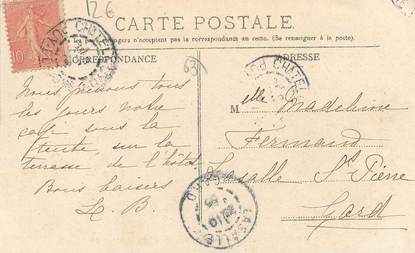 126
CARTE POSTALE
étrangers n'acceptent pas la correspondance au recto. (Se renseigner à la poste).
CORRESPONDANCE
ADRESSE
10
63
Nous prenons tous
les jours notre
café sous la
tente sur la
terrasse de l'hôtel
Bons baisers
L. B.
M elle Madeleine
Fernand
Lasalle St Pierre
Gard
LASALLE
GARD